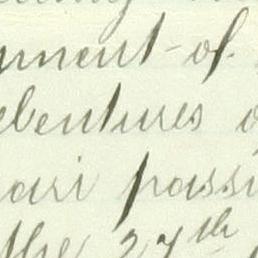 ment of
ebentures o
pari passu
the 27th